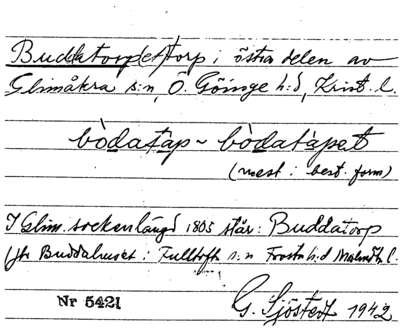 Buddatorp(et) torp i östra delen av
Glimåkra s:n, Ö. Göinge h:d, Krist. l.
bòdatàp ~ bòdatàpet
(mest i best. form)
I Glim. sockenlängd 1805 står: Buddatorp
(jfr Buddahuset i Fulltofta s:n Frosta h:d Malmöh. l.
Nr 5421
G. Sjöstedt 1942